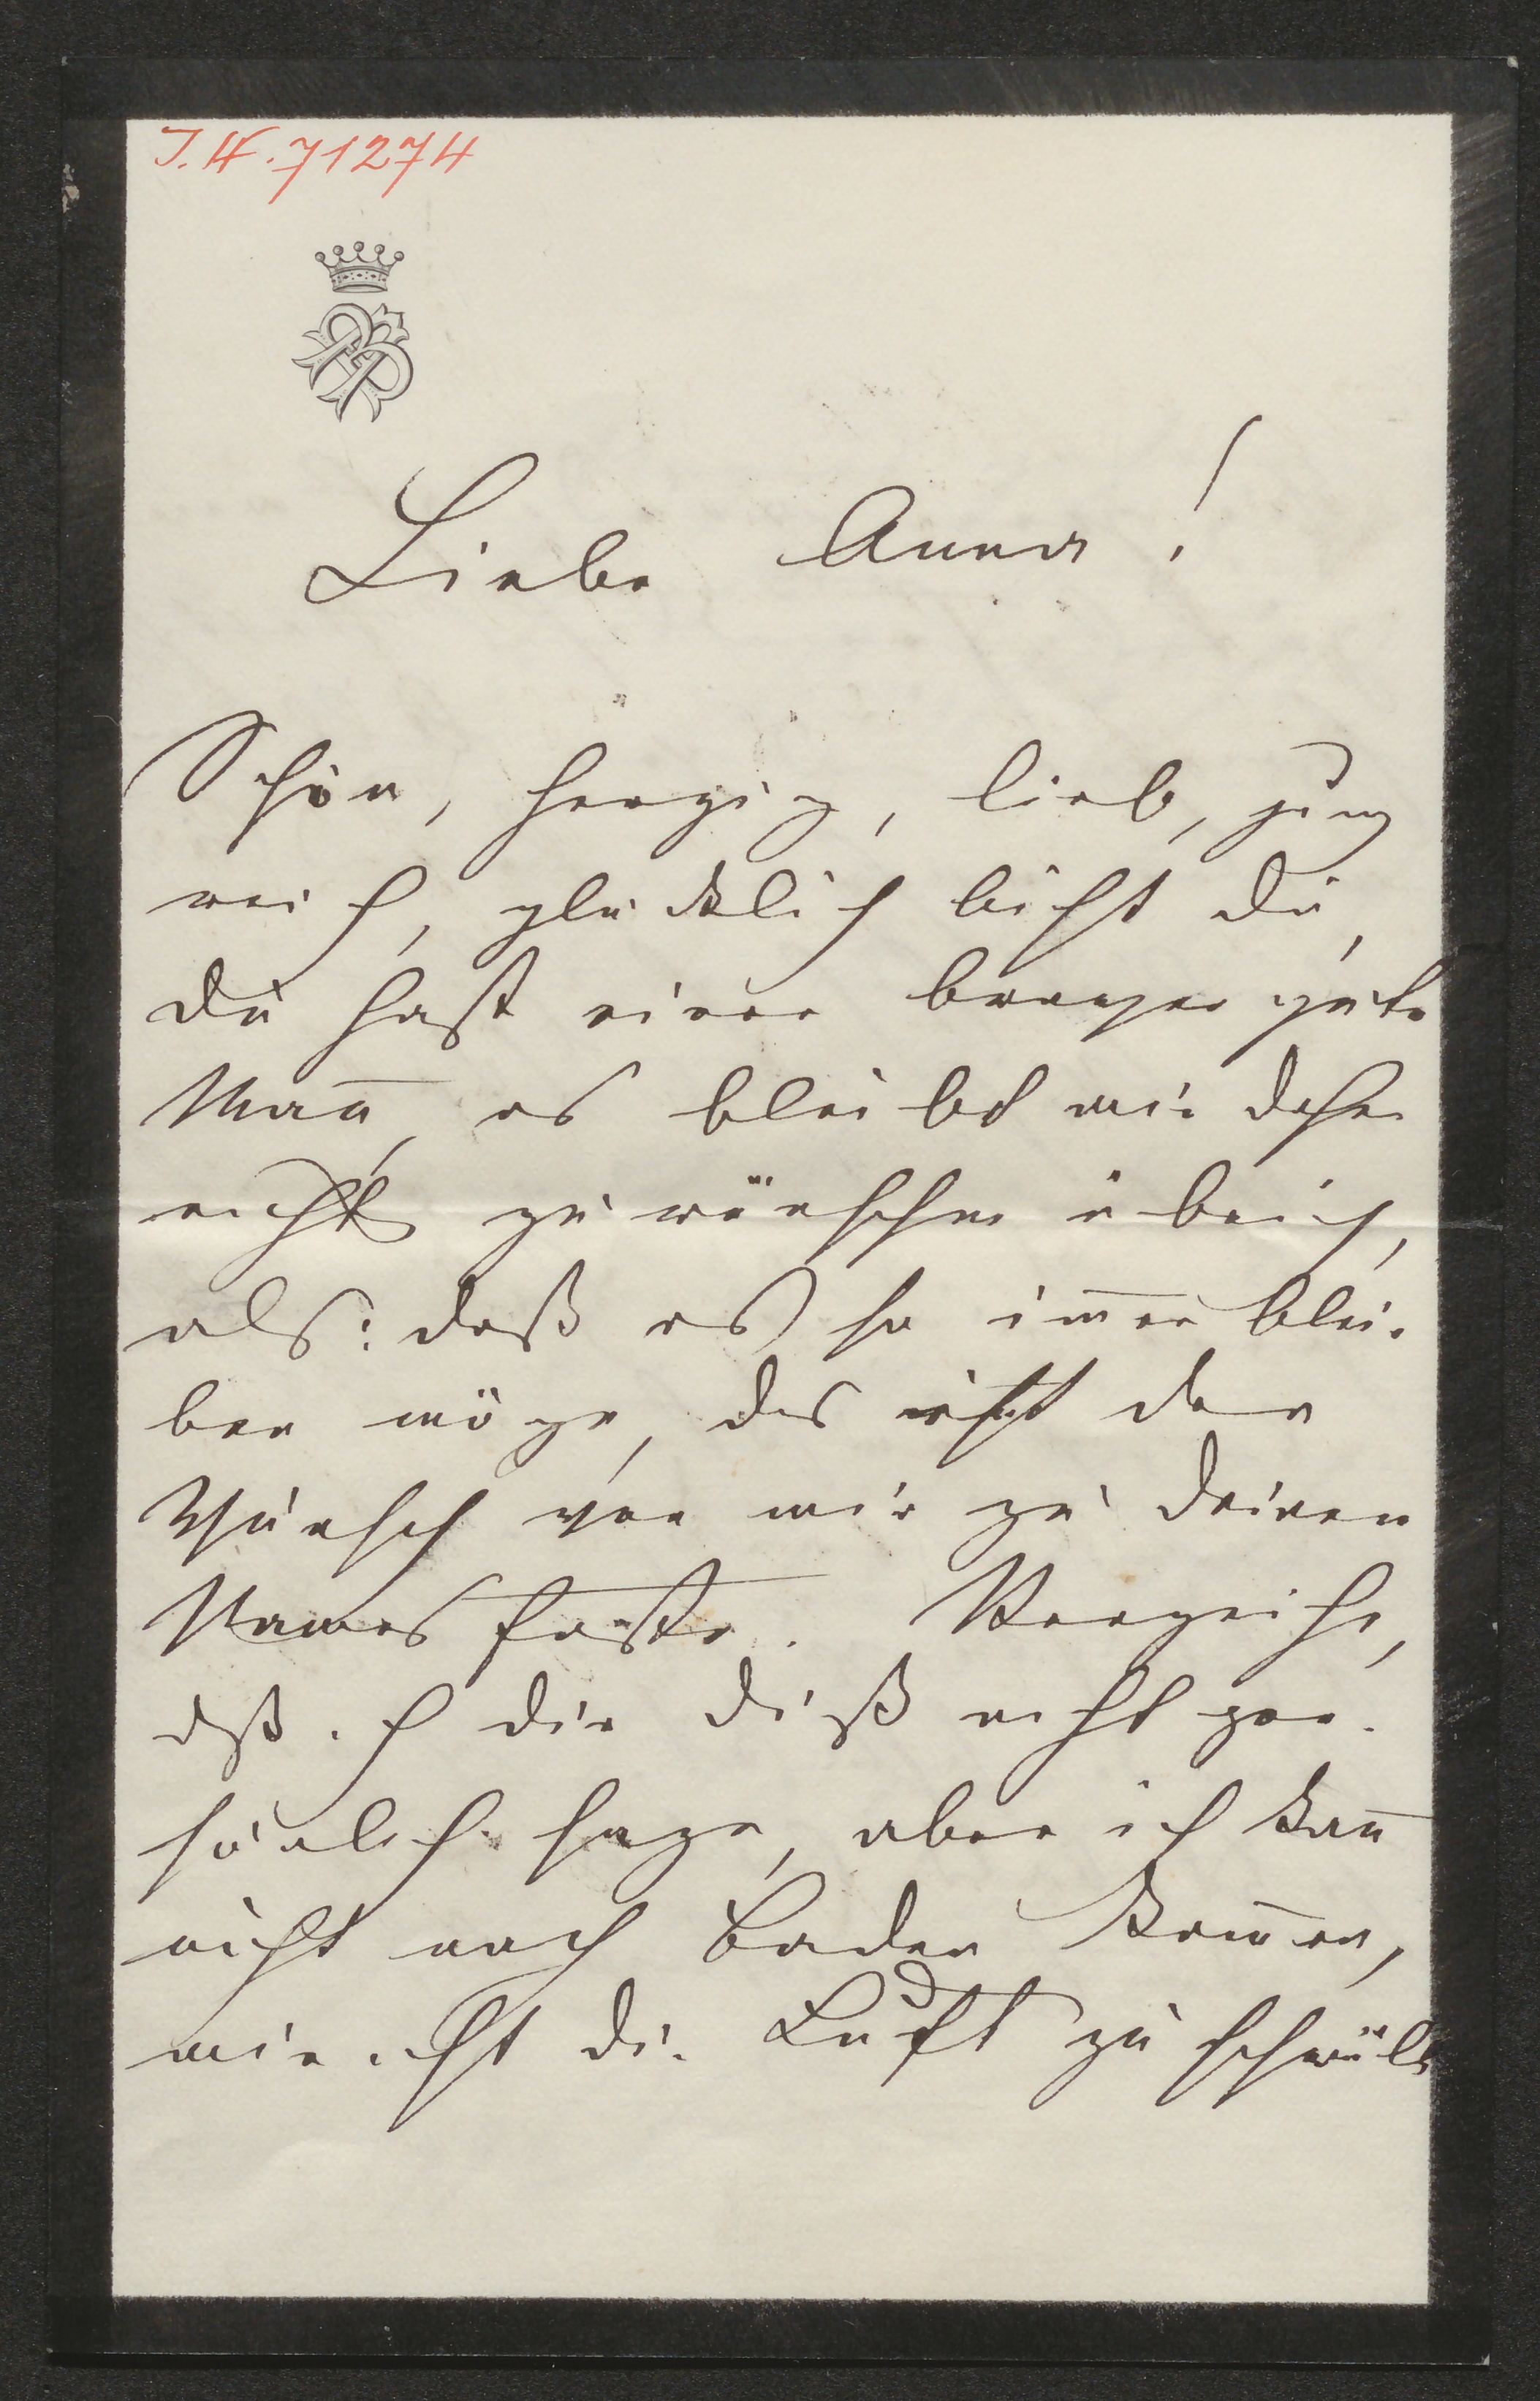 I.N. 71274
Liebe Anna!
Schön, herzig, lieb, jung
reich, glücklich bist du,
du hast einen braven gute
Mañ, es bleibt mir daher
nichts zu wünschen übrig,
als: daß es so im̄er blei-
ben möge, das ist der
Wunsch von mir zu deinem
Namesfeste. Verzeihe,
daß ich dir dieß nicht per-
sönlich sage, aber ich kañ
nicht nach Baden kom̄en,
mir ist die Luft zu schwül